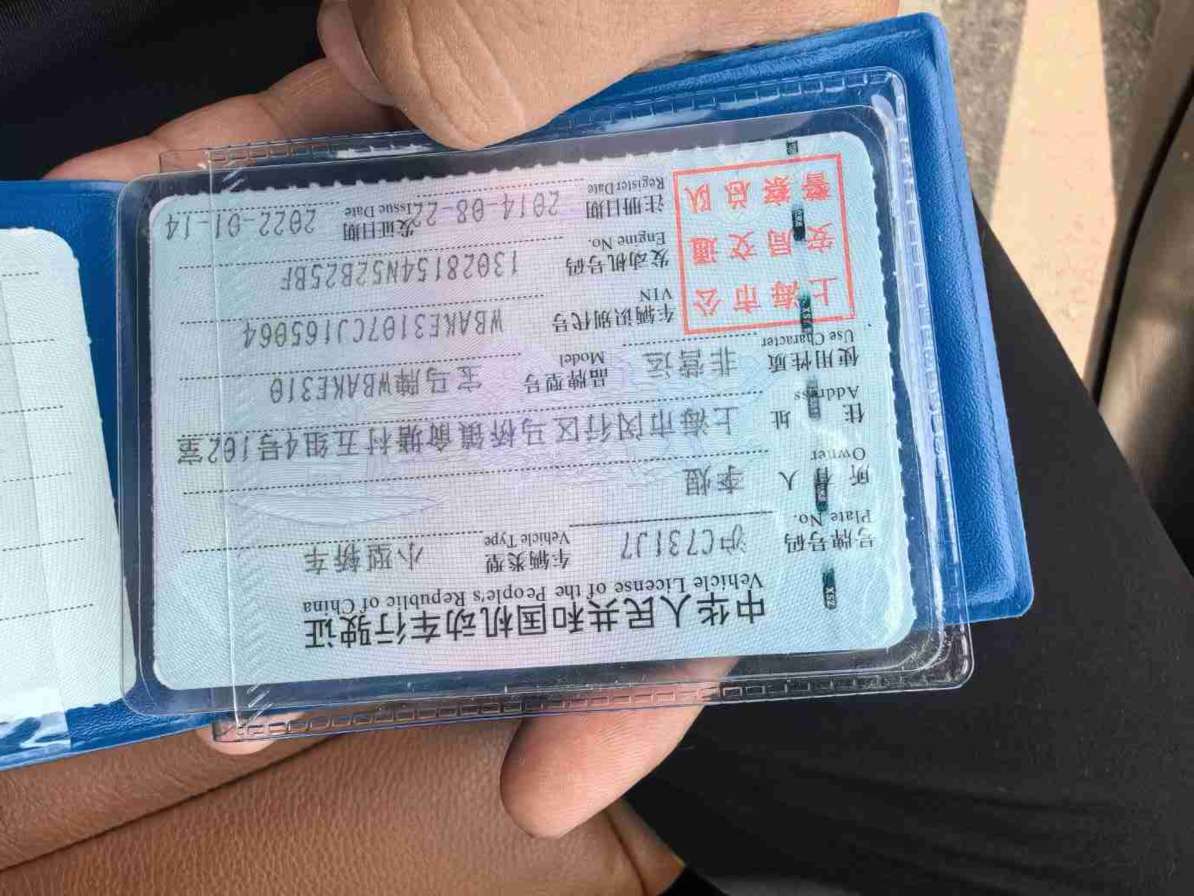 中华人民共和国机动车行驶证
Vehicle License of the People's Republic of China
号牌号码 Plate No. 沪C731J7 车辆类型 Vehicle Type 小型轿车
所有人 Owner 李煜
住址 Address 上海市闵行区马桥镇俞塘村五组4号102室
使用性质 Use Character 非营运 品牌型号 Model 宝马牌WBAKE310
上海市公
安局交通
警察总队
车辆识别代号 VIN WBAKE3107CJ165064
发动机号码 Engine No. 13028154N52B25BF
注册日期 Register Date 2014-08-22 发证日期 Issue Date 2022-01-14